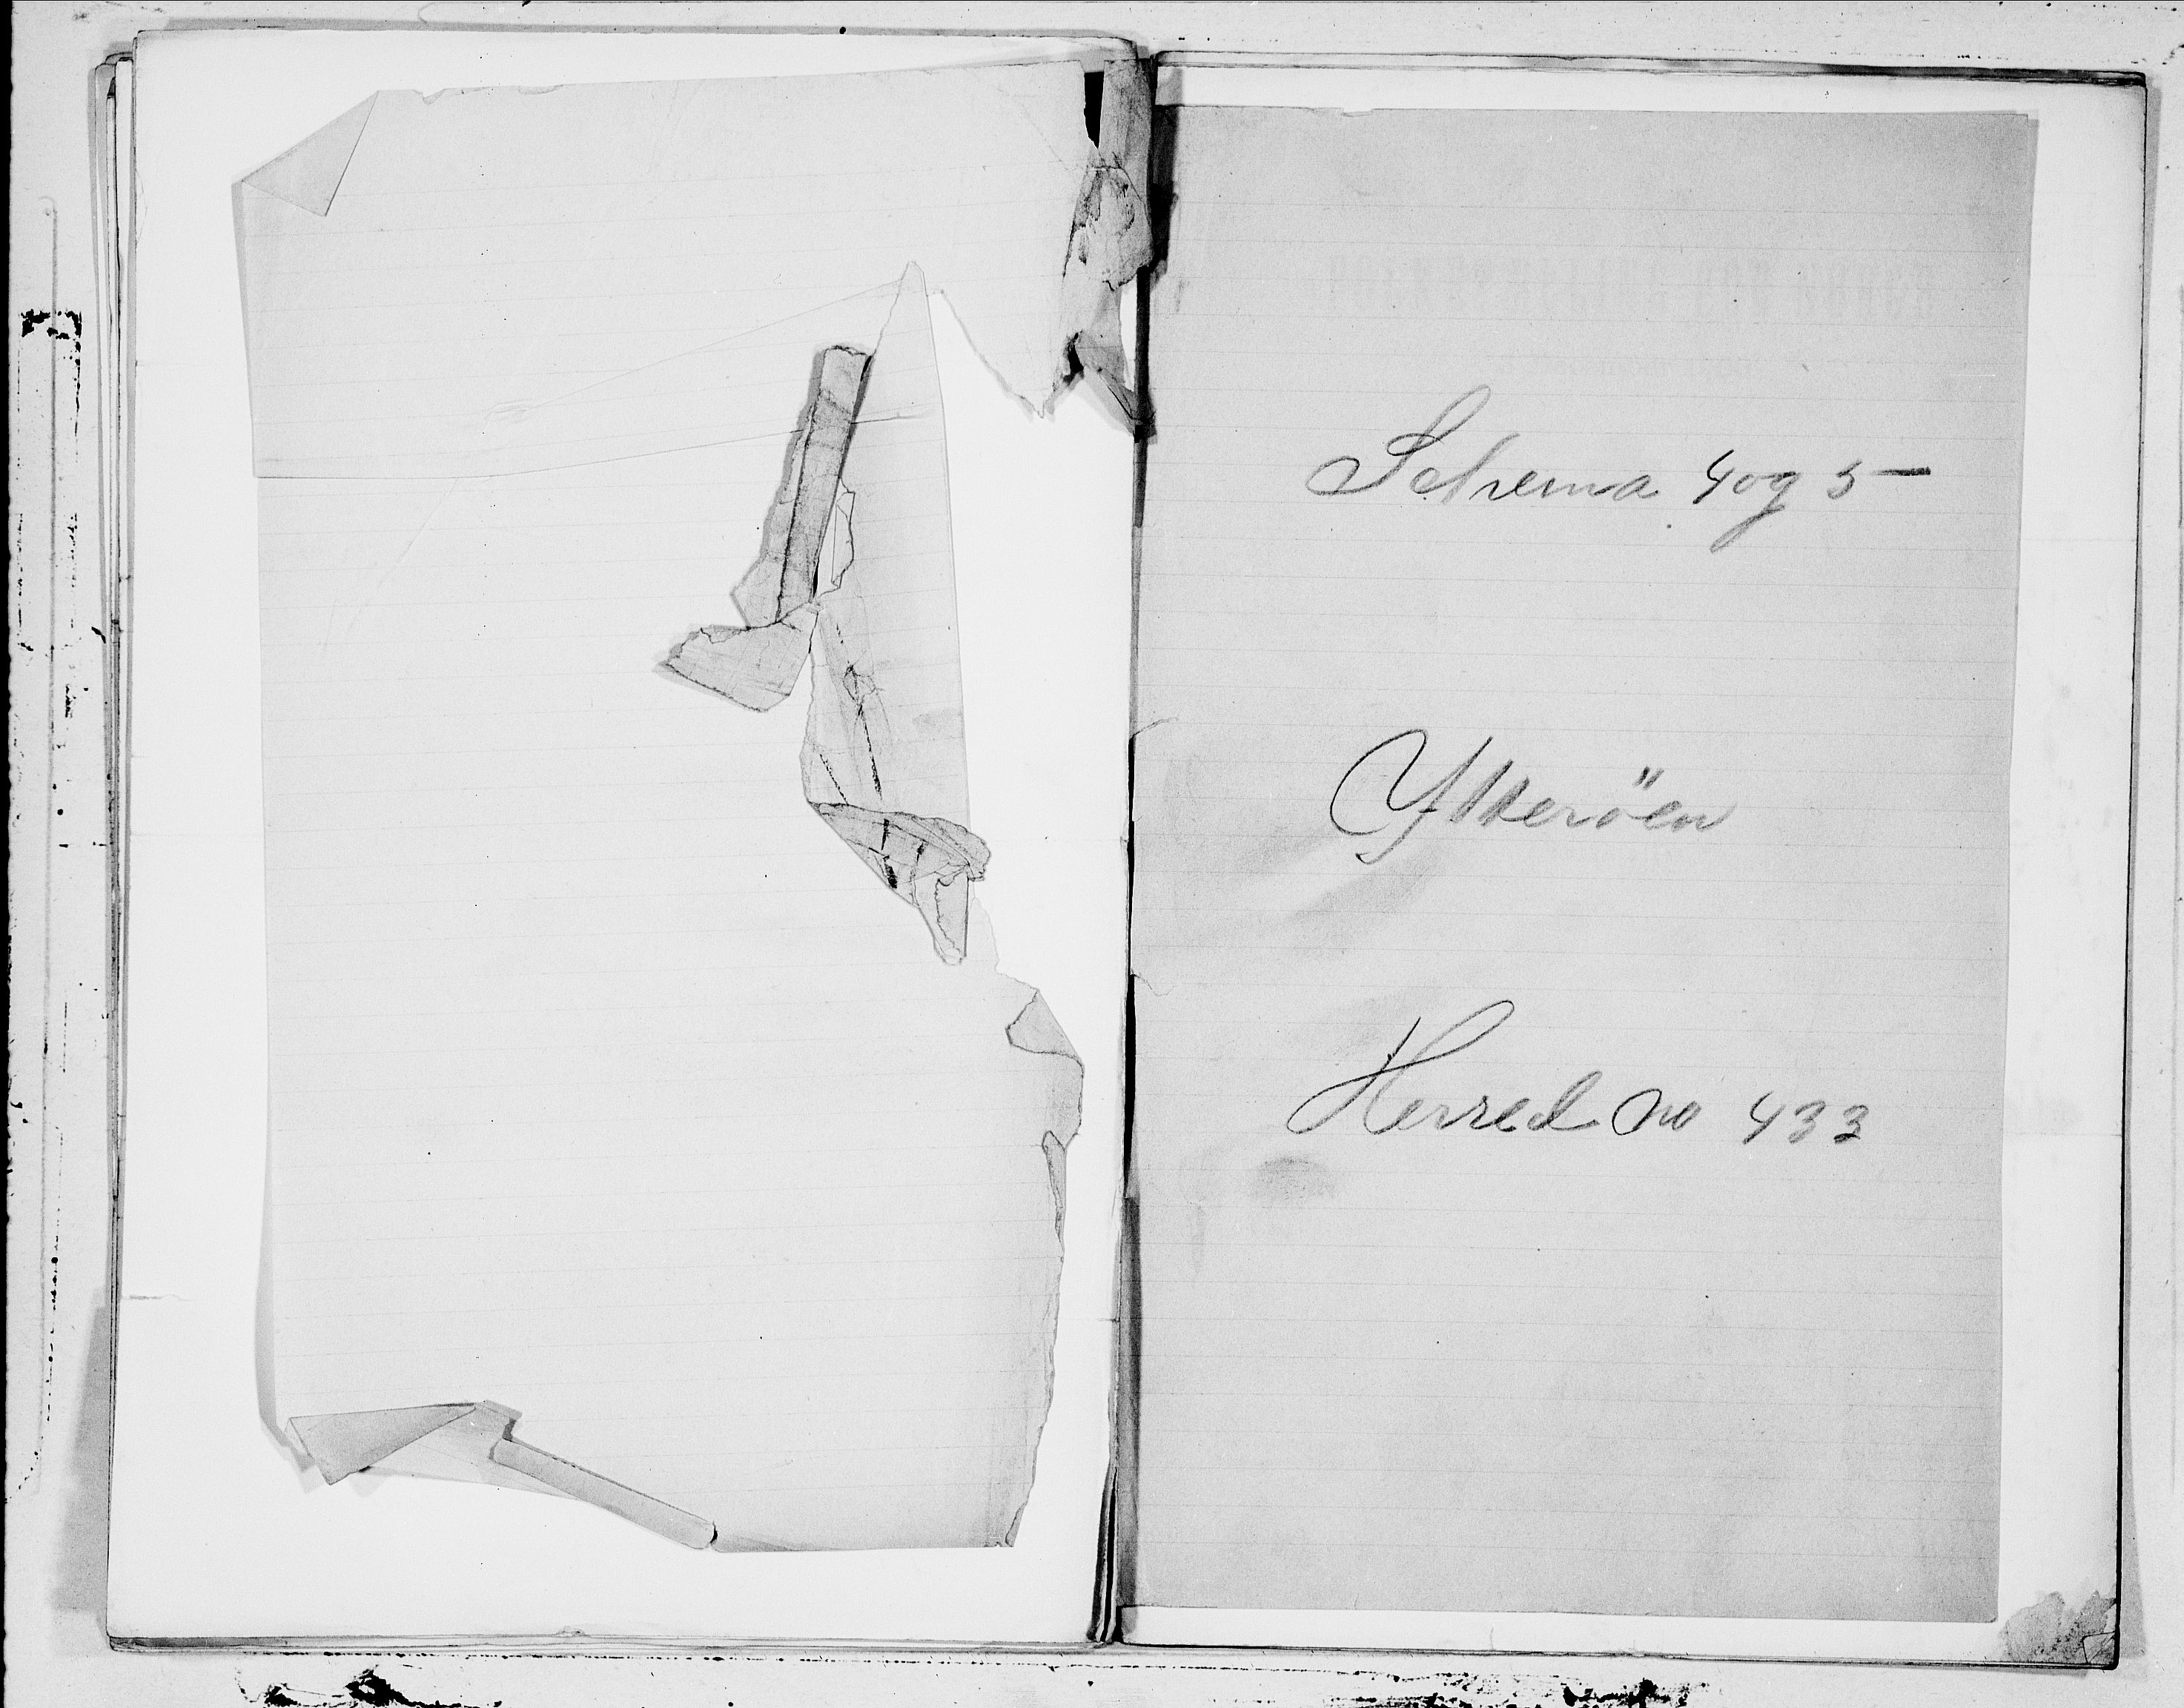 Schema 4 og 5
Ytteröen
Herred no 433